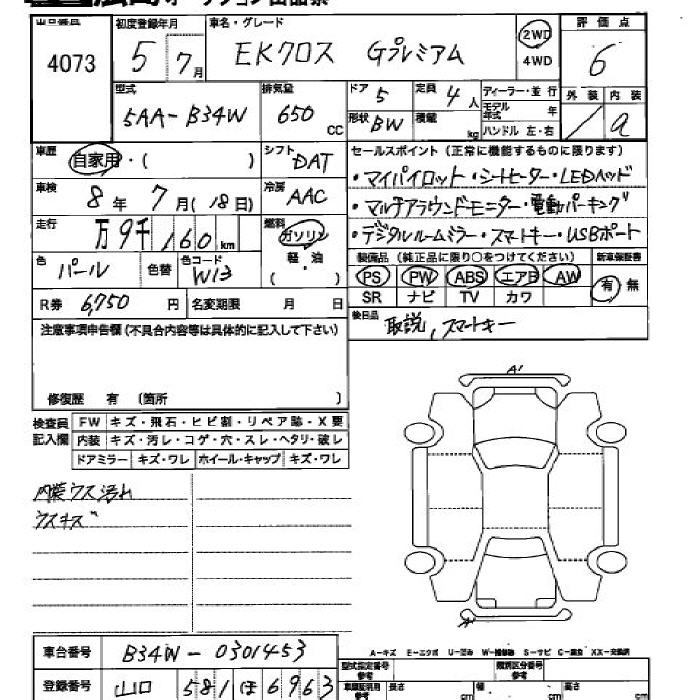 4073
初度登録年月
5 7月
車名・グレード
EKクロス Gプレミアム
2WD
4WD
評価点
6
型式
5AA-B34W
排気量
650 CC
ドア 5
定員 4人
形状 BW
積載 kg
ディーラー・並行
モデル年式 年
ハンドル 左・右
外装 内装
a
車歴
自家用・( )
シフト
DAT
セールスポイント(正常に機能するものに限ります)
・マイパイロット・シートヒーター・LEDヘッド
・マルチアラウンドモニター・電動パーキング
・デジタルルームミラー・スマートキー・USBポート
車検
8年 7月(18日)
冷房
AAC
走行
万9千160km
燃料
ガソリン
軽・油
( )
色
パール
色替
色コード
W13
装備品(純正品に限り○をつけてください)
新車保証書
PS PW ABS エアB AW
SR ナビ TV カワ
有 無
R券 6,750円
名変期限 月 日
後日品
取説,スマートキー
注意事項申告欄(不具合内容等は具体的に記入して下さい)
修復歴 有 (箇所 )
検査員記入欄
FW キズ・飛石・ヒビ割・リペア跡・X要
内装 キズ・汚レ・コゲ・穴・スレ・ヘタリ・破レ
ドアミラー キズ・ワレ ホイール・キャップ キズ・ワレ
内装ウス汚れ
ウスキズ
A1
A-キズ E-エクボ U-凹み W-補修跡 S-サビ C-腐食 XX-交換済
車台番号
B34W-0301453
型式指定番号 参考
類別区分番号 参考
登録番号
山口 581 ほ 6963
長さ cm 幅 cm 高さ cm